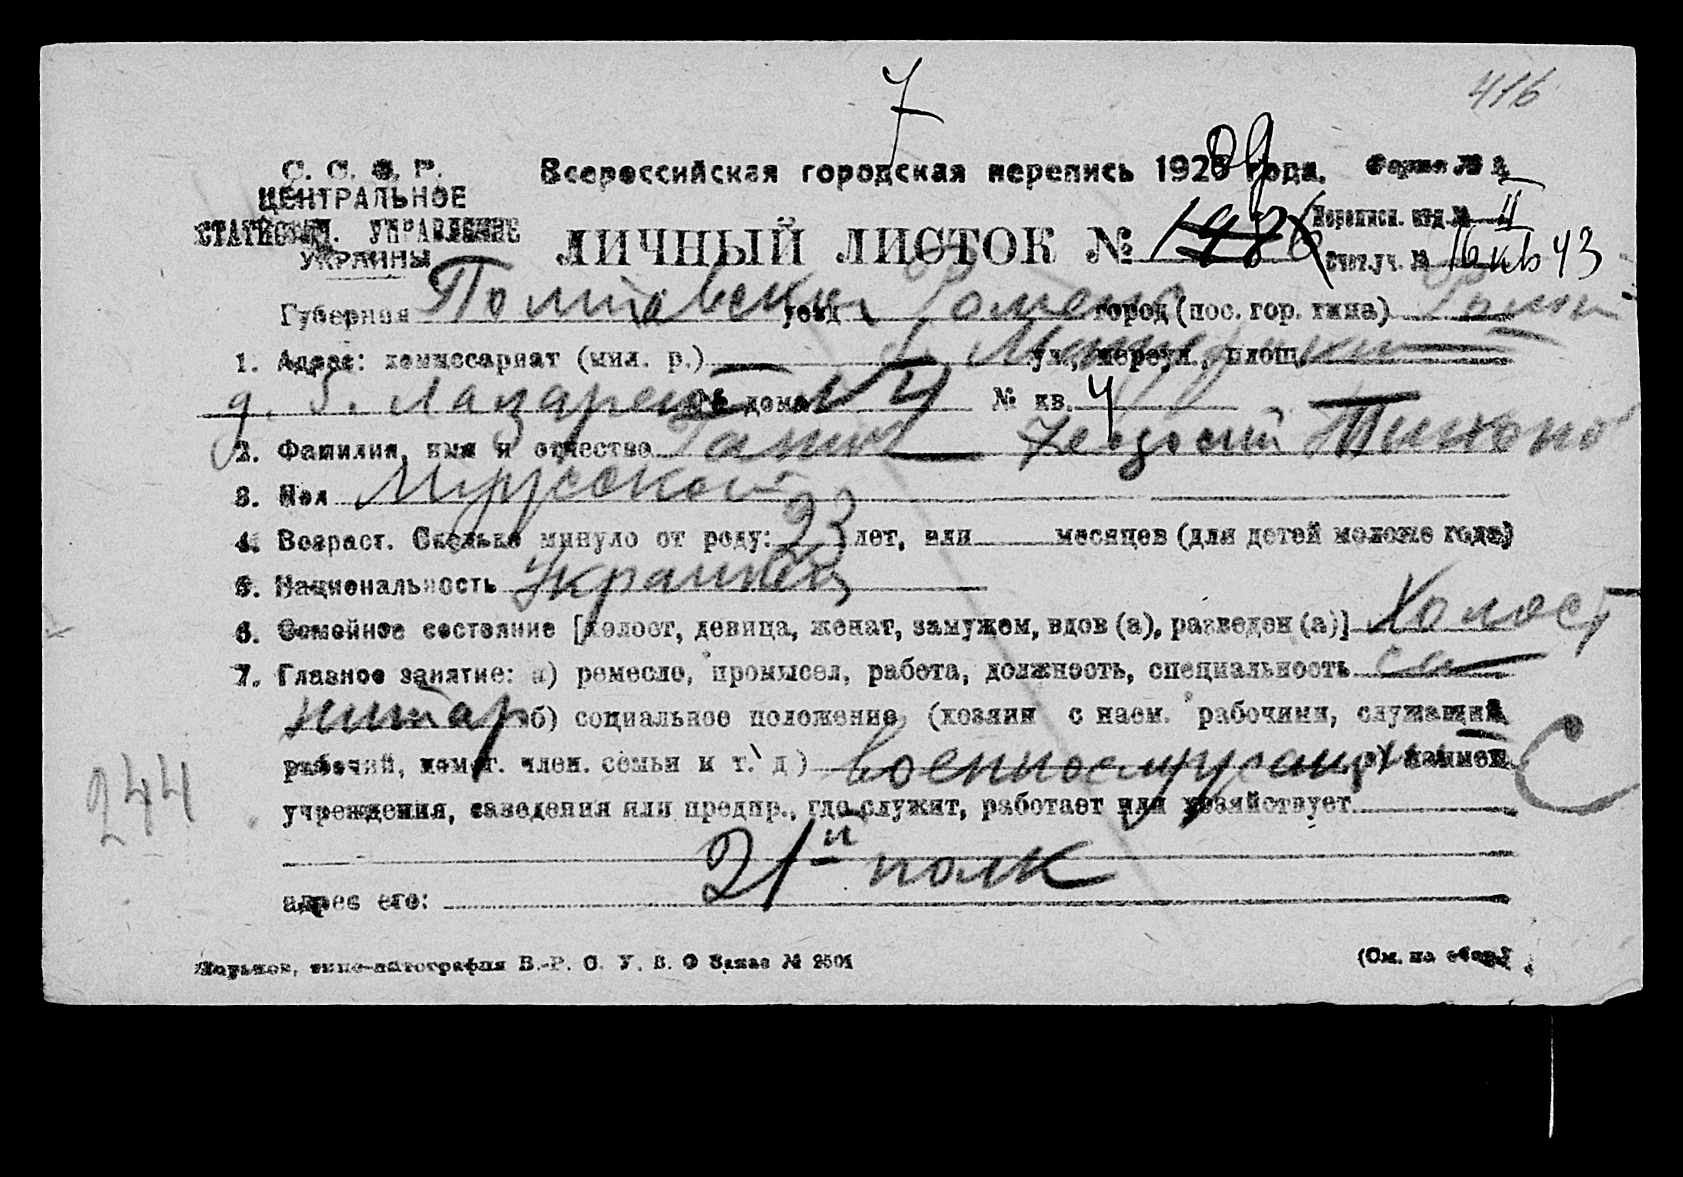 7
416
С. С. С. Р.
ЦЕНТРАЛЬНОЕ
СТАТИСТИЧ. УПРАВЛЕНИЕ
УКРАИНЫ
Всероссийская городская перепись 1923 года. Форма № 2
ЛИЧНЫЙ ЛИСТОК №
Переписн. отд. № II
Счет. уч. № 16 кв 43
Губерния Полтавская уезд Ромен город (пос. гор. типа) Ромны
1. Адрес: комиссариат (мил. р.) ул., переул., площ.
д. 3. Лазарет № дома № 4 № кв. 4
2. Фамилия, имя и отчество Феодосий Тихоно
3. Пол Мужской
4. Возраст. Сколько минуло от роду: 23 лет, или месяцев (для детей моложе года)
5. Национальность Украинец
6. Семейное состояние [холост, девица, женат, замужем, вдов (а), разведен (а)] Холост
7. Главное занятие: а) ремесло, промысел, работа, должность, специальность са
нитар б) социальное положение, (хозяин с наем. рабочими, служащий
рабочий, помог. член. семьи и т. д) военнослужащ в) наимен. С
244
учреждения, заведения или предпр., где служит, работает или хозяйствует
21й полк
адрес его:
Харьков, типо-литография В.-Р. С. У. В. О Заказ № 2501
(См. на обор.)